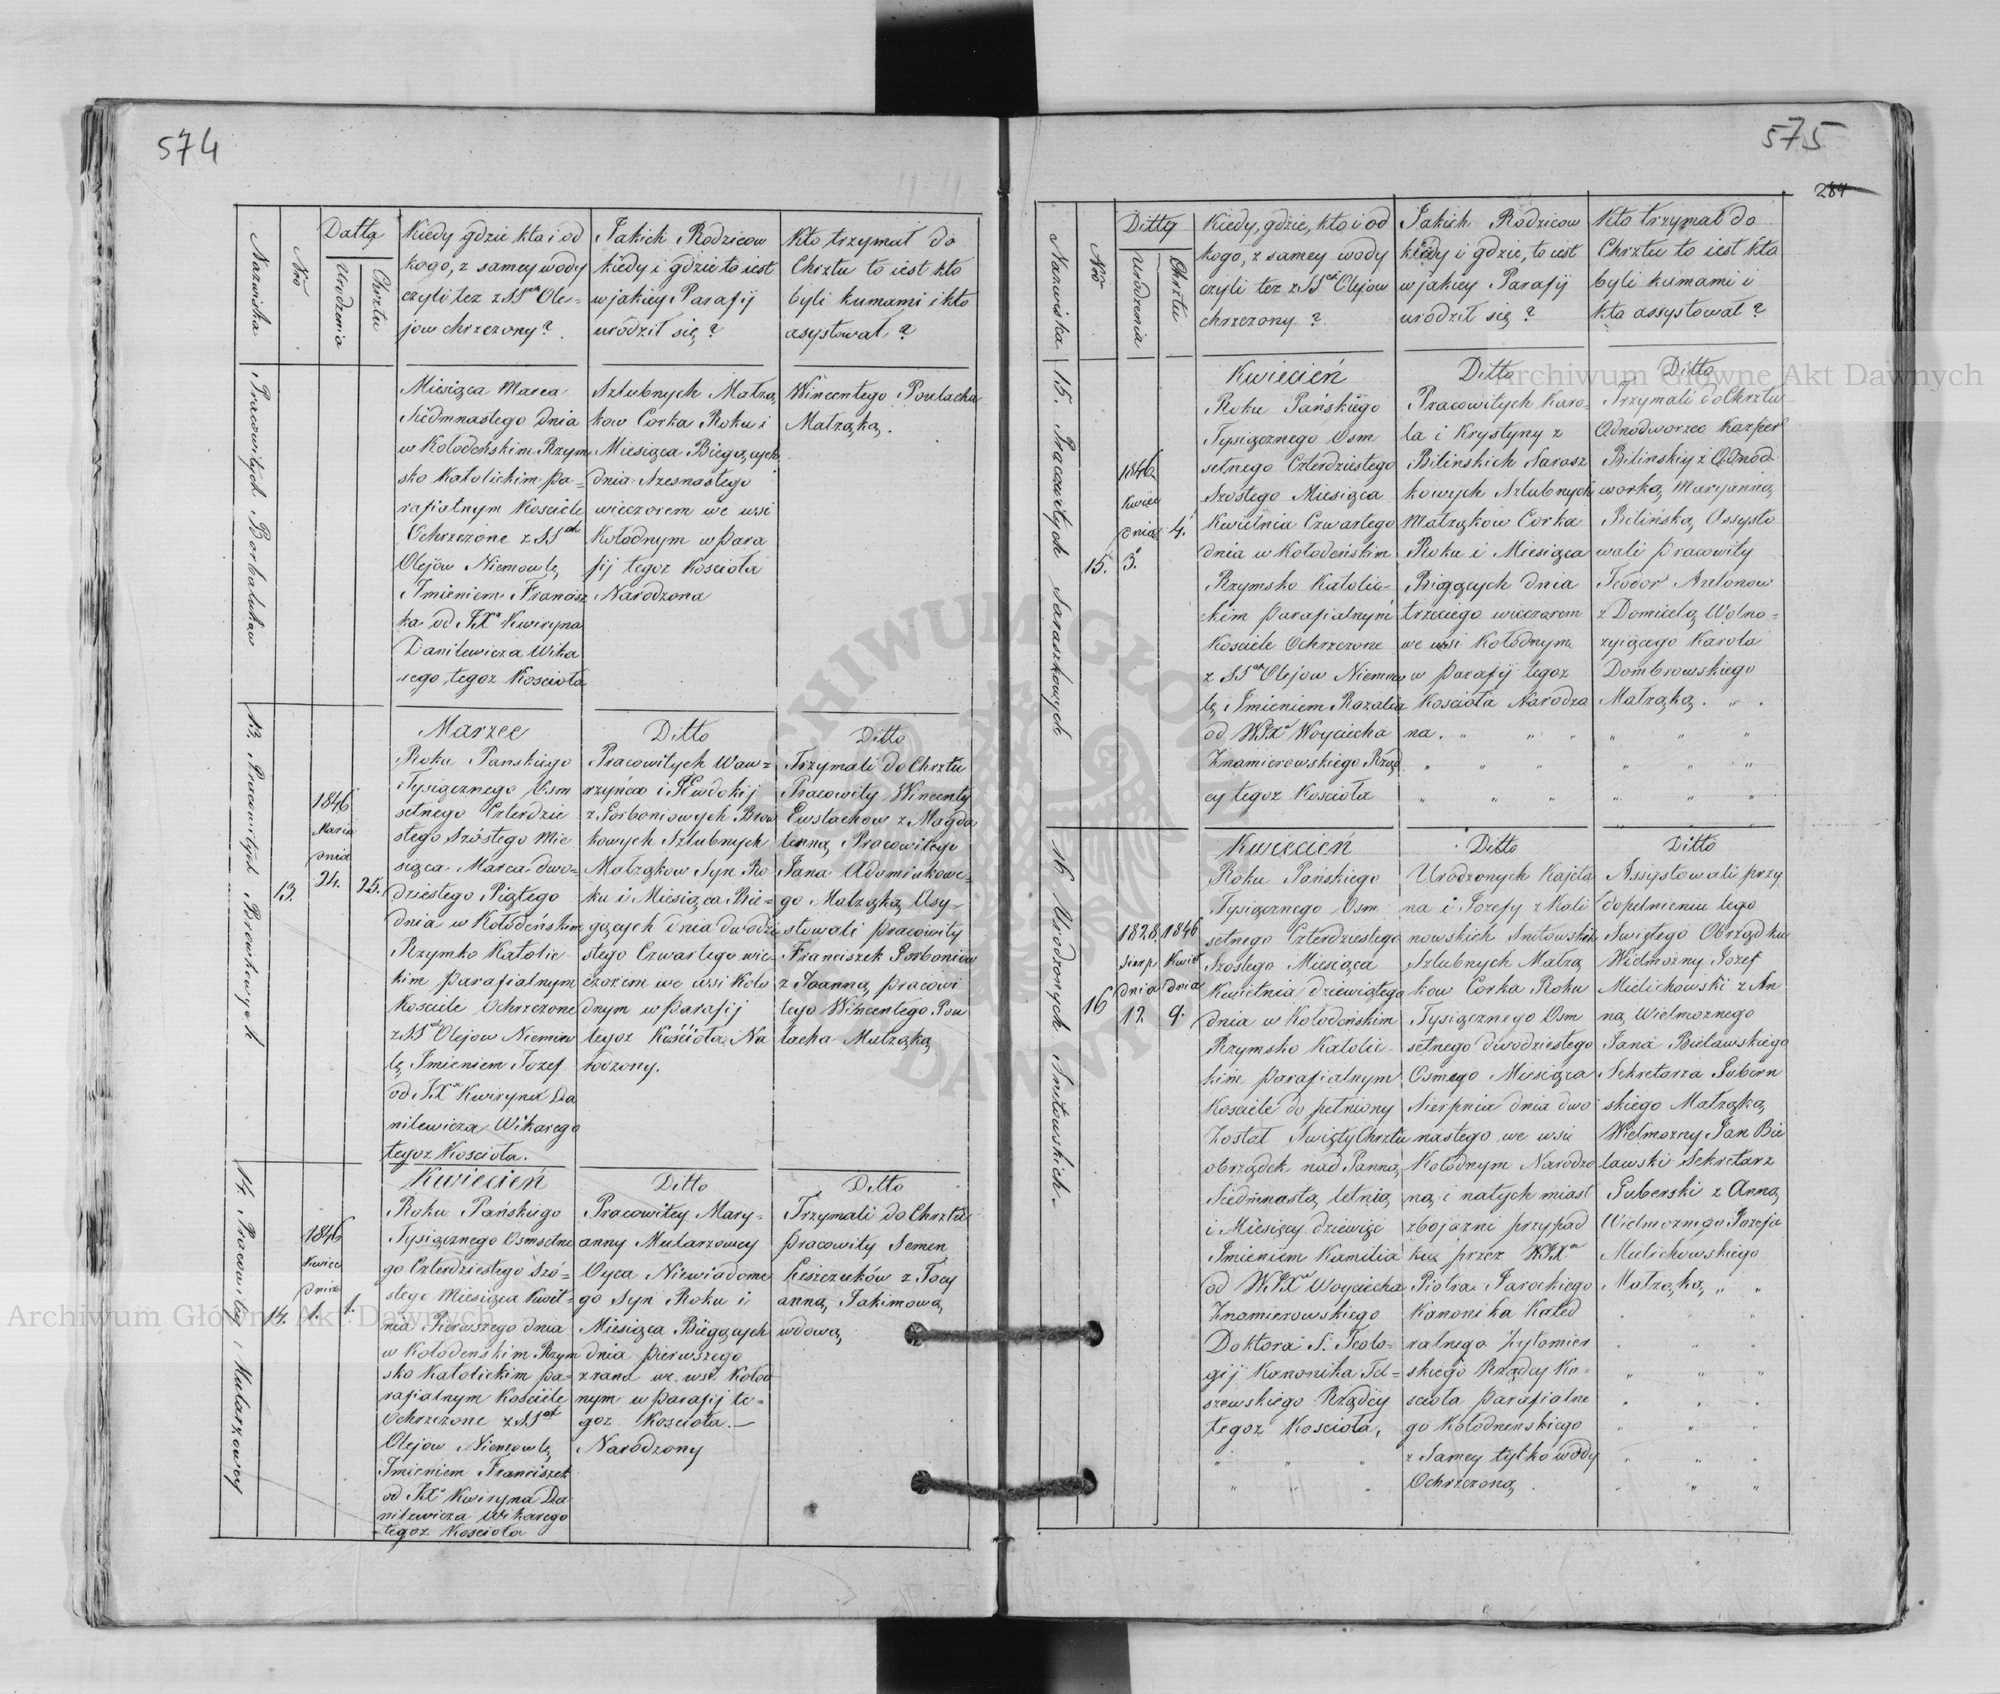 574
Nazwiska
Nro
Datta
Urodzenia
Chrztu
Kiedy gdzie kto i od
kogo, z samey wody
czyli tez z SSch Ole-
jow chrzczony?
Jakich Rodzicow
kiedy i gdzie to iest
w jakiey Parafij
urodził się?
Kto trzymał do
Chrztu to iest kto
byli kumami i kto
asystował?
Pracowitych
Miesiąca Marca
Siedmnastego dnia
w Kołodeńskim Rzym
sko Katolickim Pa=
rafialnym Kosciele
Ochrzczone z SSch
Olejow Niemowlę
Imieniem Francisz
ka od JXa Kwiryna
Danilewicza Wika
rego tegoz Koscioła
Szlubnych Małżą
kow Corka Roku i
Miesiąca Bieg ących
dnia Szesnastego
wieczorem we wsi
Kołodnym w Para
fij tegoz Kosciola
Narodzona
Wincentego Poulacha
Małżąką.
13. Pracowitych
13.
1846
Marca
dnia
24.
25.
Marzec
Roku Pańskiego
Tysiącznego Osm
setnego Czterdzie
stego Szóstego Mie
siąca Marca dwo=
dziestego Piątego
dnia w Kołodeńskim
Rzymko Katolic-
kim Parafialnym
Kosciele Ochrzczone
z SSch Olejow Niemow
lę Imieniem Jozef
od JXa Kwiryna Da
nilewicza Wikarego
tegoz Kosciola.
Ditto
Pracowitych Waw=
rzyńca i Ewdokij
z Gorboniowych
kowych Szlubnych
Małżąkow Syn Ro
ku i Miesiąca Bie-
gących dnia dwodzie
stego Czwartego wie-
czorem we wsi Koło
dnym w Parafij
tegoz Kościoła Na
rodzony.
Ditto
Trzymali do Chrztu
Pracowity Wincenty
Ewstachow z Magda
lenną Pracowitego
Jana Adamiakowe-
go Małżąką Asy-
stowali pracowity
Franciszek Gorboniow
z Joanną pracowi
tego Wincentego Pou
lacha Małżąką
14. Pracowitey Mularzowey
14.
1846
Kwiec
dnia
1.
1.
Kwiecień
Roku Pańskiego
Tysiącznego Osmsetne
go Czterdziestego Szó=
stego Miesiąca Kwiet-
nia Pierwszego dnia
w Kołodeńskim Rzym
sko Katolickim Pa=
rafialnym Kościele
Ochrzczone z SSch
Olejow Niemowlę
Imieniem Franciszek
od JXa Kwiryna Da
nilewicza Wikarego
tegoz Kosciola
Ditto
Pracowitey Mary=
anny Mularzowey
Oyca Niewiadome
go Syn Roku i
Miesiąca Biegących
dnia pierwszego
z rana we wsi Kołod
nym w Parafij te-
goz Kosciola.—
Narodzony
Ditto
Trzymali do Chrztu
pracowity Semen
Leszczuków z Tacy
anną Jakimową
wdową
575
284
Nazwiska
Nro
Ditta
Urodzenia
Chrztu
Kiedy, gdzie, kto i od
kogo, z samey wody
czyli tez z SSch Olejow
chrzczony?
Jakich Rodzicow
kiedy i gdzie, to iest
w jakiey Parafij
urodził się?
Kto trzymał do
Chrztu to iest kto
byli kumami i
kto assystował?
15. Pracowitych Saraszkowych
15.
1846
Kwiec
dnia
3.
4.
Kwiecień
Roku Pańskiego
Tysiącznego Osm
setnego Czterdziestego
Szostego Miesiąca
Kwietnia Czwartego
dnia w Kołodeńskim
Rzymsko Katolic-
kim Parafialnym
Kosciele Ochrzczone
z SSch Olejow Niemow
lę Imieniem Rozalia
od WJXa Woyciecha
Znamierowskiego Rząd
cy tegoz Kosciola
Ditto
Pracowitych Karo-
la i Krystyny z
Bilinskich Sarasz
kowych Szlubnych
Małżąkow Corka
Roku i Miesiąca
Biegących dnia
trzeciego wieczorem
we wsi Kołodnym
w Parafij tegoz
Kosciola Narodzo
na.
Ditto
Trzymali do Chrztu
Odnodworzec Kasper
Bilinskiy z Odnod
worką Maryanną
Bilińską Assysto
wali pracowity
Teodor Antonow
z Domicelą Wolno=
zyiącego Karola
Dombrowskiego
Małżąką.
16. Urodzonych Antowskich
16
1828.
Sierp
dnia
12.
1846
Kwiet
dnia
9.
Kwiecień
Roku Pańskiego
Tysiącznego Osm
setnego Czterdziestego
Szostego Miesiąca
Kwietnia dziewiątego
dnia w Kołodeńskim
Rzymsko Katolic-
kim Parafialnym
Kosciele do pełniony
Został Swięty Chrztu
obrządek nad Panną
Siedmnasto letnią
i Miesięcy dziewięć
Imieniem Kamilia
od WJXa Woyciecha
Znamierowskiego
Doktora S. Teolo-
gij Kanonika
Rządcy
tegoz Kosciola,
Ditto
Urodzonych Kajeta
na i Jozefy z Kali
nowskich Antowskich
Szlubnych Małżą
kow Corka Roku
Tysiącznego Osm
setnego dwodziestego
Osmego Miesiąca
Sierpnia dnia dwo
nastego we wsi
Kołodnym Narodzo
na, i natych miast
z bojazni przypad
ku przez WJXa
Piotra Jarockiego
Kanonika Kated
ralnego Zytomier
skiego Rządcy Ko-
scioła parafialne
go Kołodnenskiego
z Samey tylko wody
Ochrzczoną.
Ditto
Assystowali przy
dopełnieniu tego
Swiętego Obrządku
Wielmozny Jozef
Mielichowski z An
ną Wielmoznego
Jana Bielawskiego
Sekretarza Gubern
skiego Małżąką
Wielmozny Jan Bie
lawski Sekretarz
Guberski z Anną
Wielmoznego Jozefa
Mielichowskiego
Małżąką
Archiwum Główne Akt Dawnych
Archiwum Główne Akt Dawnych